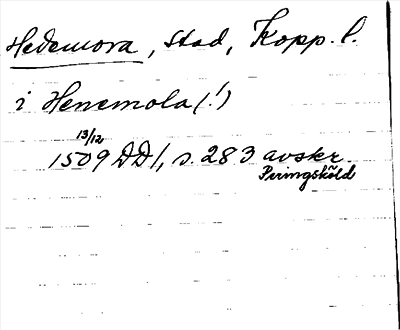 Hedemora, stad, Kopp. l.
i Henemola (!)
13/12
1509 DD1, s. 283 avskr.
Peringsköld